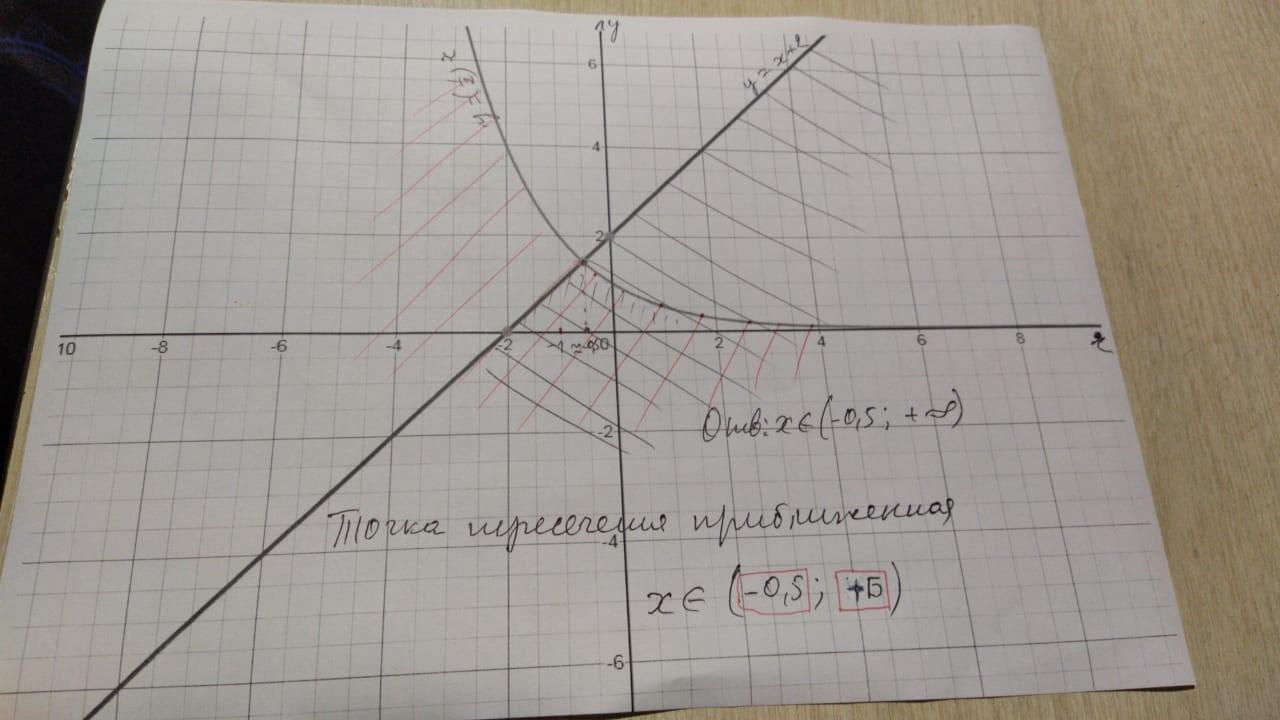 y
y = (1/2)^x
y = x+2
6
4
2
10 -8 -6 -4 -2 -1 ≈-0,5 0 2 4 6 8 x
-2
Отв: x ∈ (-0,5; +∞)
Точка пересечения приближенная
-4
x ∈ (-0,5; +Б)
-6